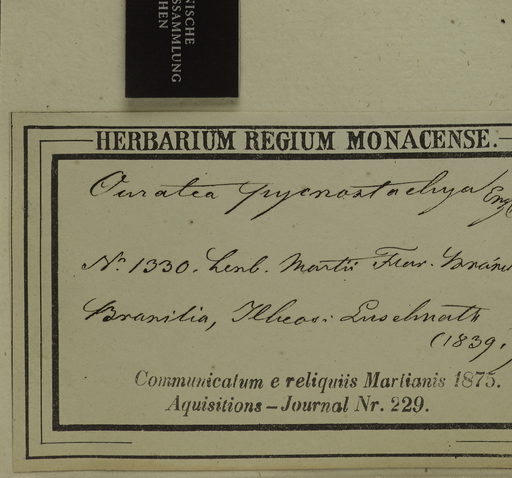 NISCHE
SSAMMLUNG
CHEN
HERBARIUM REGIUM MONACENSE.
Ouratea pycnostachya Engl
No. 1330. herb. Martii Flor. Brasil
Brasilia, Ilheos: Luschnath
(1839.)
Communicatum e reliquiis Martianis 1875.
Aquisitions – Journal Nr. 229.